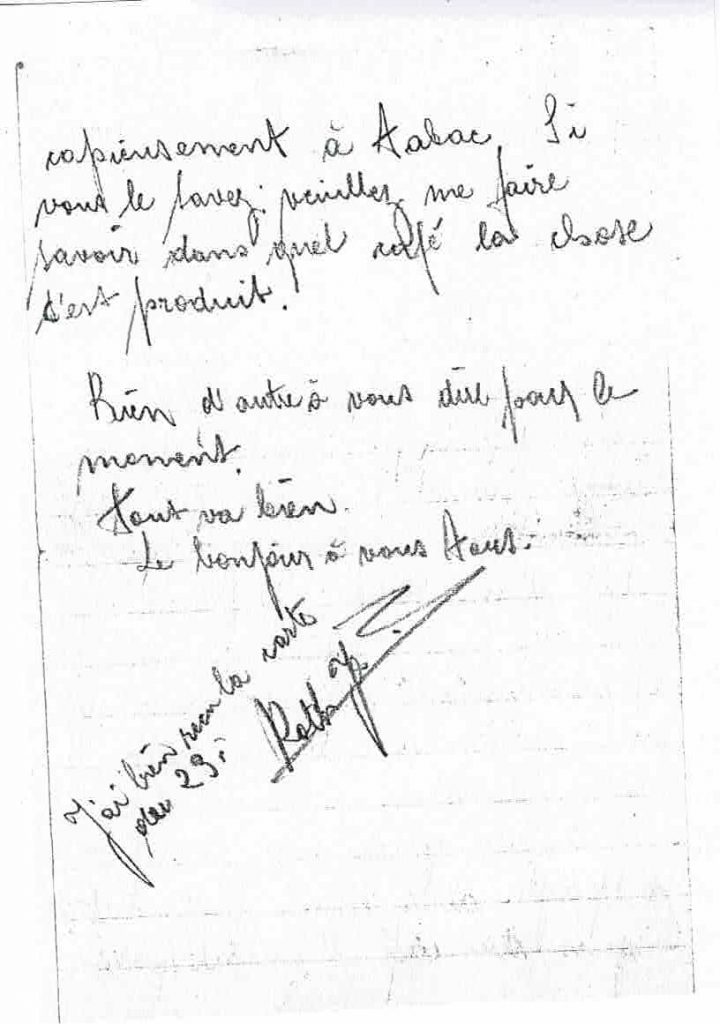 copieusement à tabac. Si
vous le savez, veuillez me faire
savoir dans quel café la chose
s'est produit.
Rien d'autre à vous dire pour le
moment.
Tout va bien.
Le bonjour à vous tous.
J'ai bien reçu la carte
du 29.
Roth